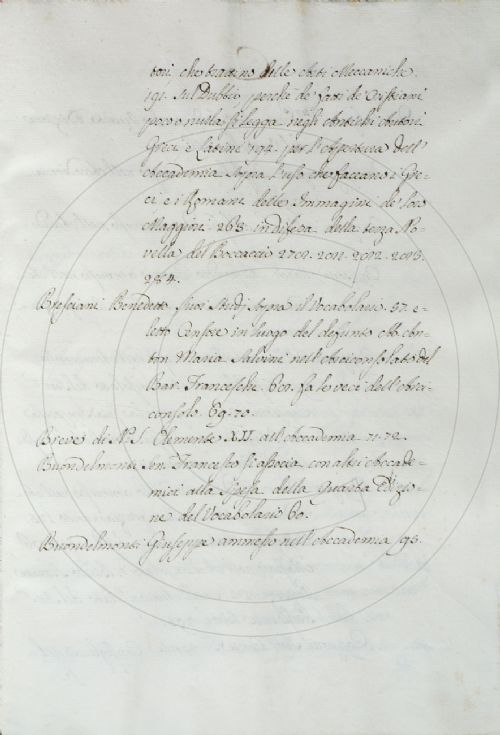 tori che trattino delle Arti Meccaniche.
191. Sul Dubbio perchè de fatti de' Cristiani
poco o nulla si legga negli Antichi Autori
Greci e Latini 192. per l'Apertura dell'
Accademia Sopra l'uso che faceano i Gre-
ci e i Romani delle Immagini de' loro
Maggiori. 268. in difesa della terza No-
vella del Boccaccio 270. 2011. 2012. 2013.
284.
Bresciani Benedetto Suoi Studj sopra il Vocabolario. 57. e-
letto Censore in luogo del defunto Ab. An-
ton Maria Salvini nell'Arciconsolato del
Bar. Franceschi. 60. fa le veci dell'Arci-
consolo. 69. 70.
Breve di N. S. Clemente XII. all'Accademia 71. 72.
Buondelmonti Sen. Francesco si associa con altri Accade-
mici alla Spesa della Quarta Edizio-
ne del Vocabolario 60.
Buondelmonti Giuseppe ammesso nell'Accademia 95.